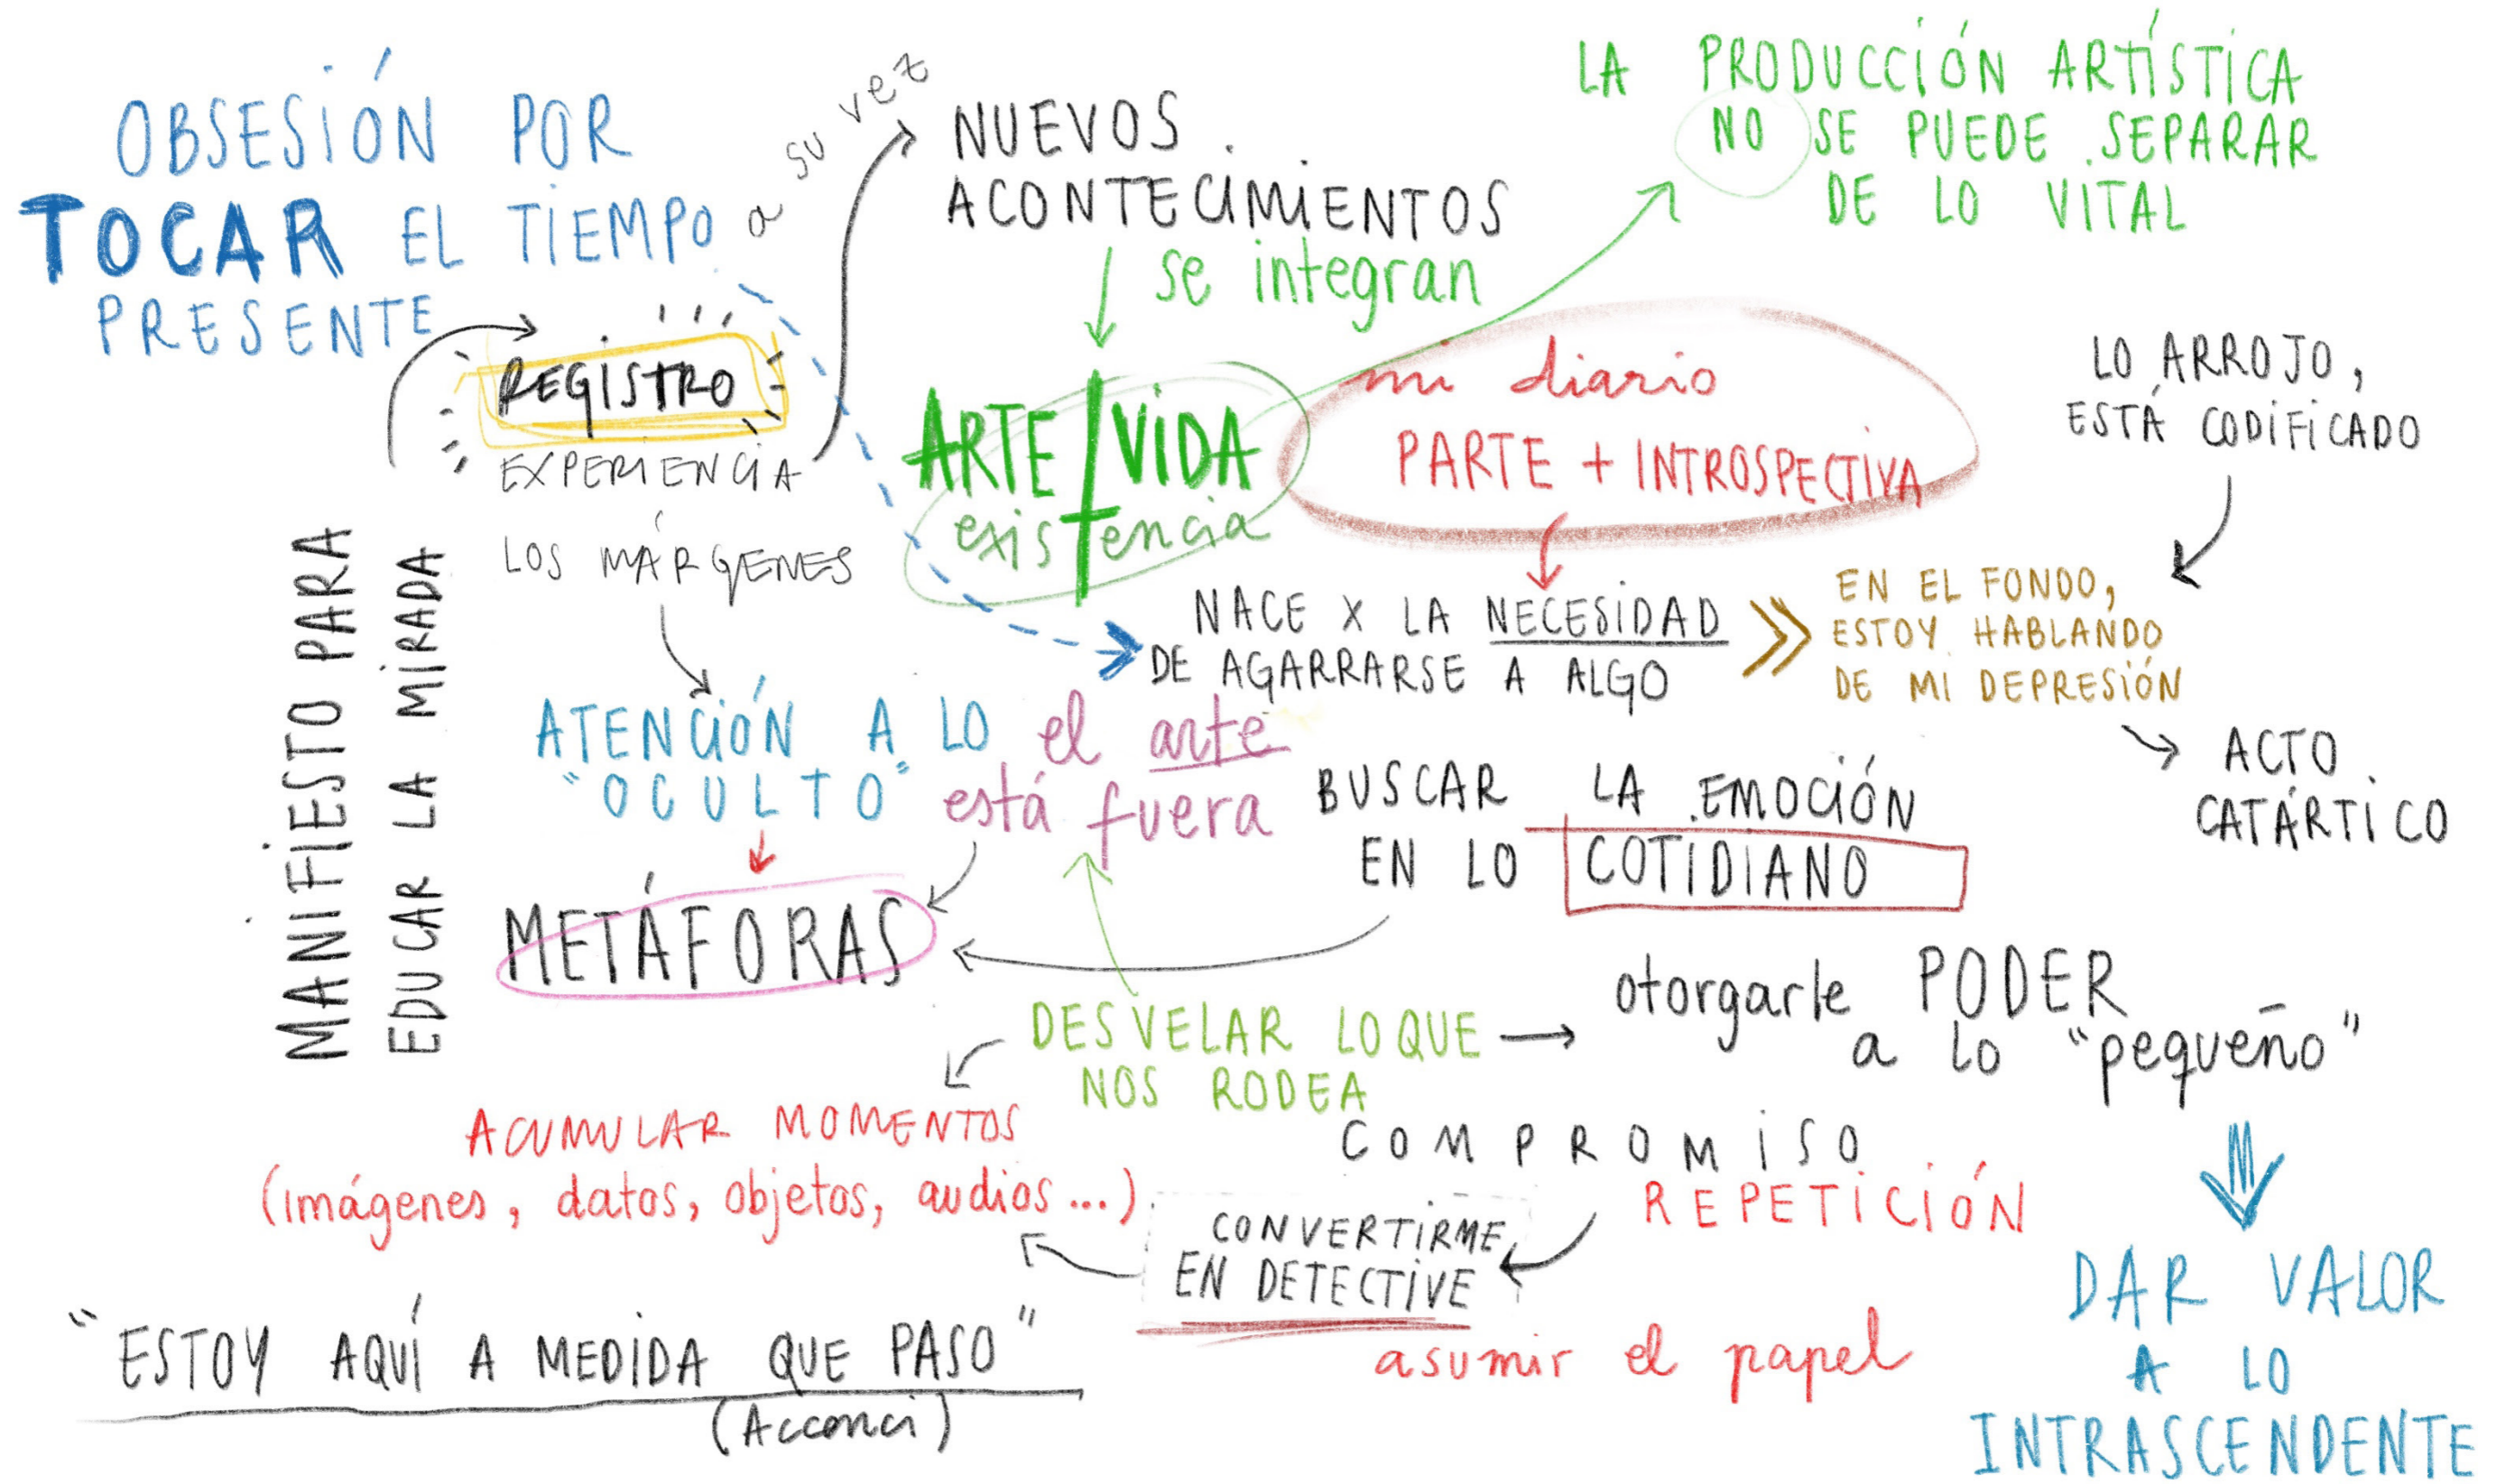 OBSESIÓN POR
TOCAR EL TIEMPO
PRESENTE
a su vez
NUEVOS
ACONTECIMIENTOS
se integran
LA PRODUCCIÓN ARTÍSTICA
NO SE PUEDE SEPARAR
DE LO VITAL
REGISTRO
EXPERIENCIA
LOS MÁRGENES
ARTE/VIDA
existencia
mi diario
PARTE + INTROSPECTIVA
LO ARROJO,
ESTÁ CODIFICADO
MANIFIESTO PARA
EDUCAR LA MIRADA
NACE X LA NECESIDAD
DE AGARRARSE A ALGO
EN EL FONDO,
ESTOY HABLANDO
DE MI DEPRESIÓN
ACTO
CATÁRTICO
ATENCIÓN A LO
"OCULTO"
el arte
está fuera
BUSCAR LA EMOCIÓN
EN LO COTIDIANO
METÁFORAS
DESVELAR LO QUE
NOS RODEA
otorgarle PODER
a lo "pequeño"
ACUMULAR MOMENTOS
(imágenes, datos, objetos, audios...)
COMPROMISO
REPETICIÓN
CONVERTIRME
EN DETECTIVE
asumir el papel
DAR VALOR
A LO
INTRASCENDENTE
"ESTOY AQUÍ A MEDIDA QUE PASO"
(Acconci)